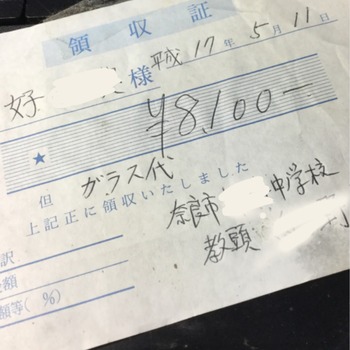 領収証
平成17年5月11日
好 様
★ ¥8,100−
但 ガラス代
上記正に領収いたしました
奈良市 中学校
教頭
訳
額
額等( %)